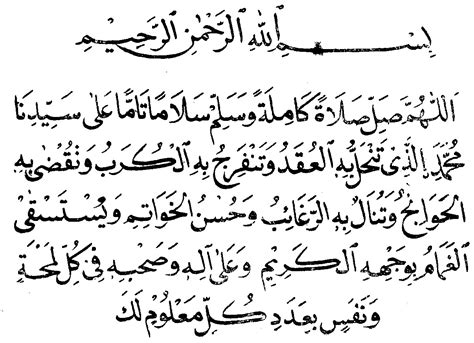 بِسْمِ اللهِ الرَّحْمٰنِ الرَّحِيْمِ
اَللّٰهُمَّ صَلِّ صَلَاةً كَامِلَةً وَسَلِّمْ سَلَامًا تَامًّا عَلَى سَيِّدِنَا
مُحَمَّدِ الَّذِى تَنْحَلُّ بِهِ الْعُقَدُ وَتَنْفَرِجُ بِهِ الْكُرَبُ وَتُقْضَى بِهِ
الْحَوَائِجُ وَتُنَالُ بِهِ الرَّغَائِبُ وَحُسْنُ الْخَوَاتِمِ وَيُسْتَسْقَى
الْغَمَامُ بِوَجْهِهِ الْكَرِيْمِ وَعَلَى آلِهِ وَصَحْبِهِ فِى كُلِّ لَمْحَةٍ
وَنَفَسٍ بِعَدَدِ كُلِّ مَعْلُوْمٍ لَكَ